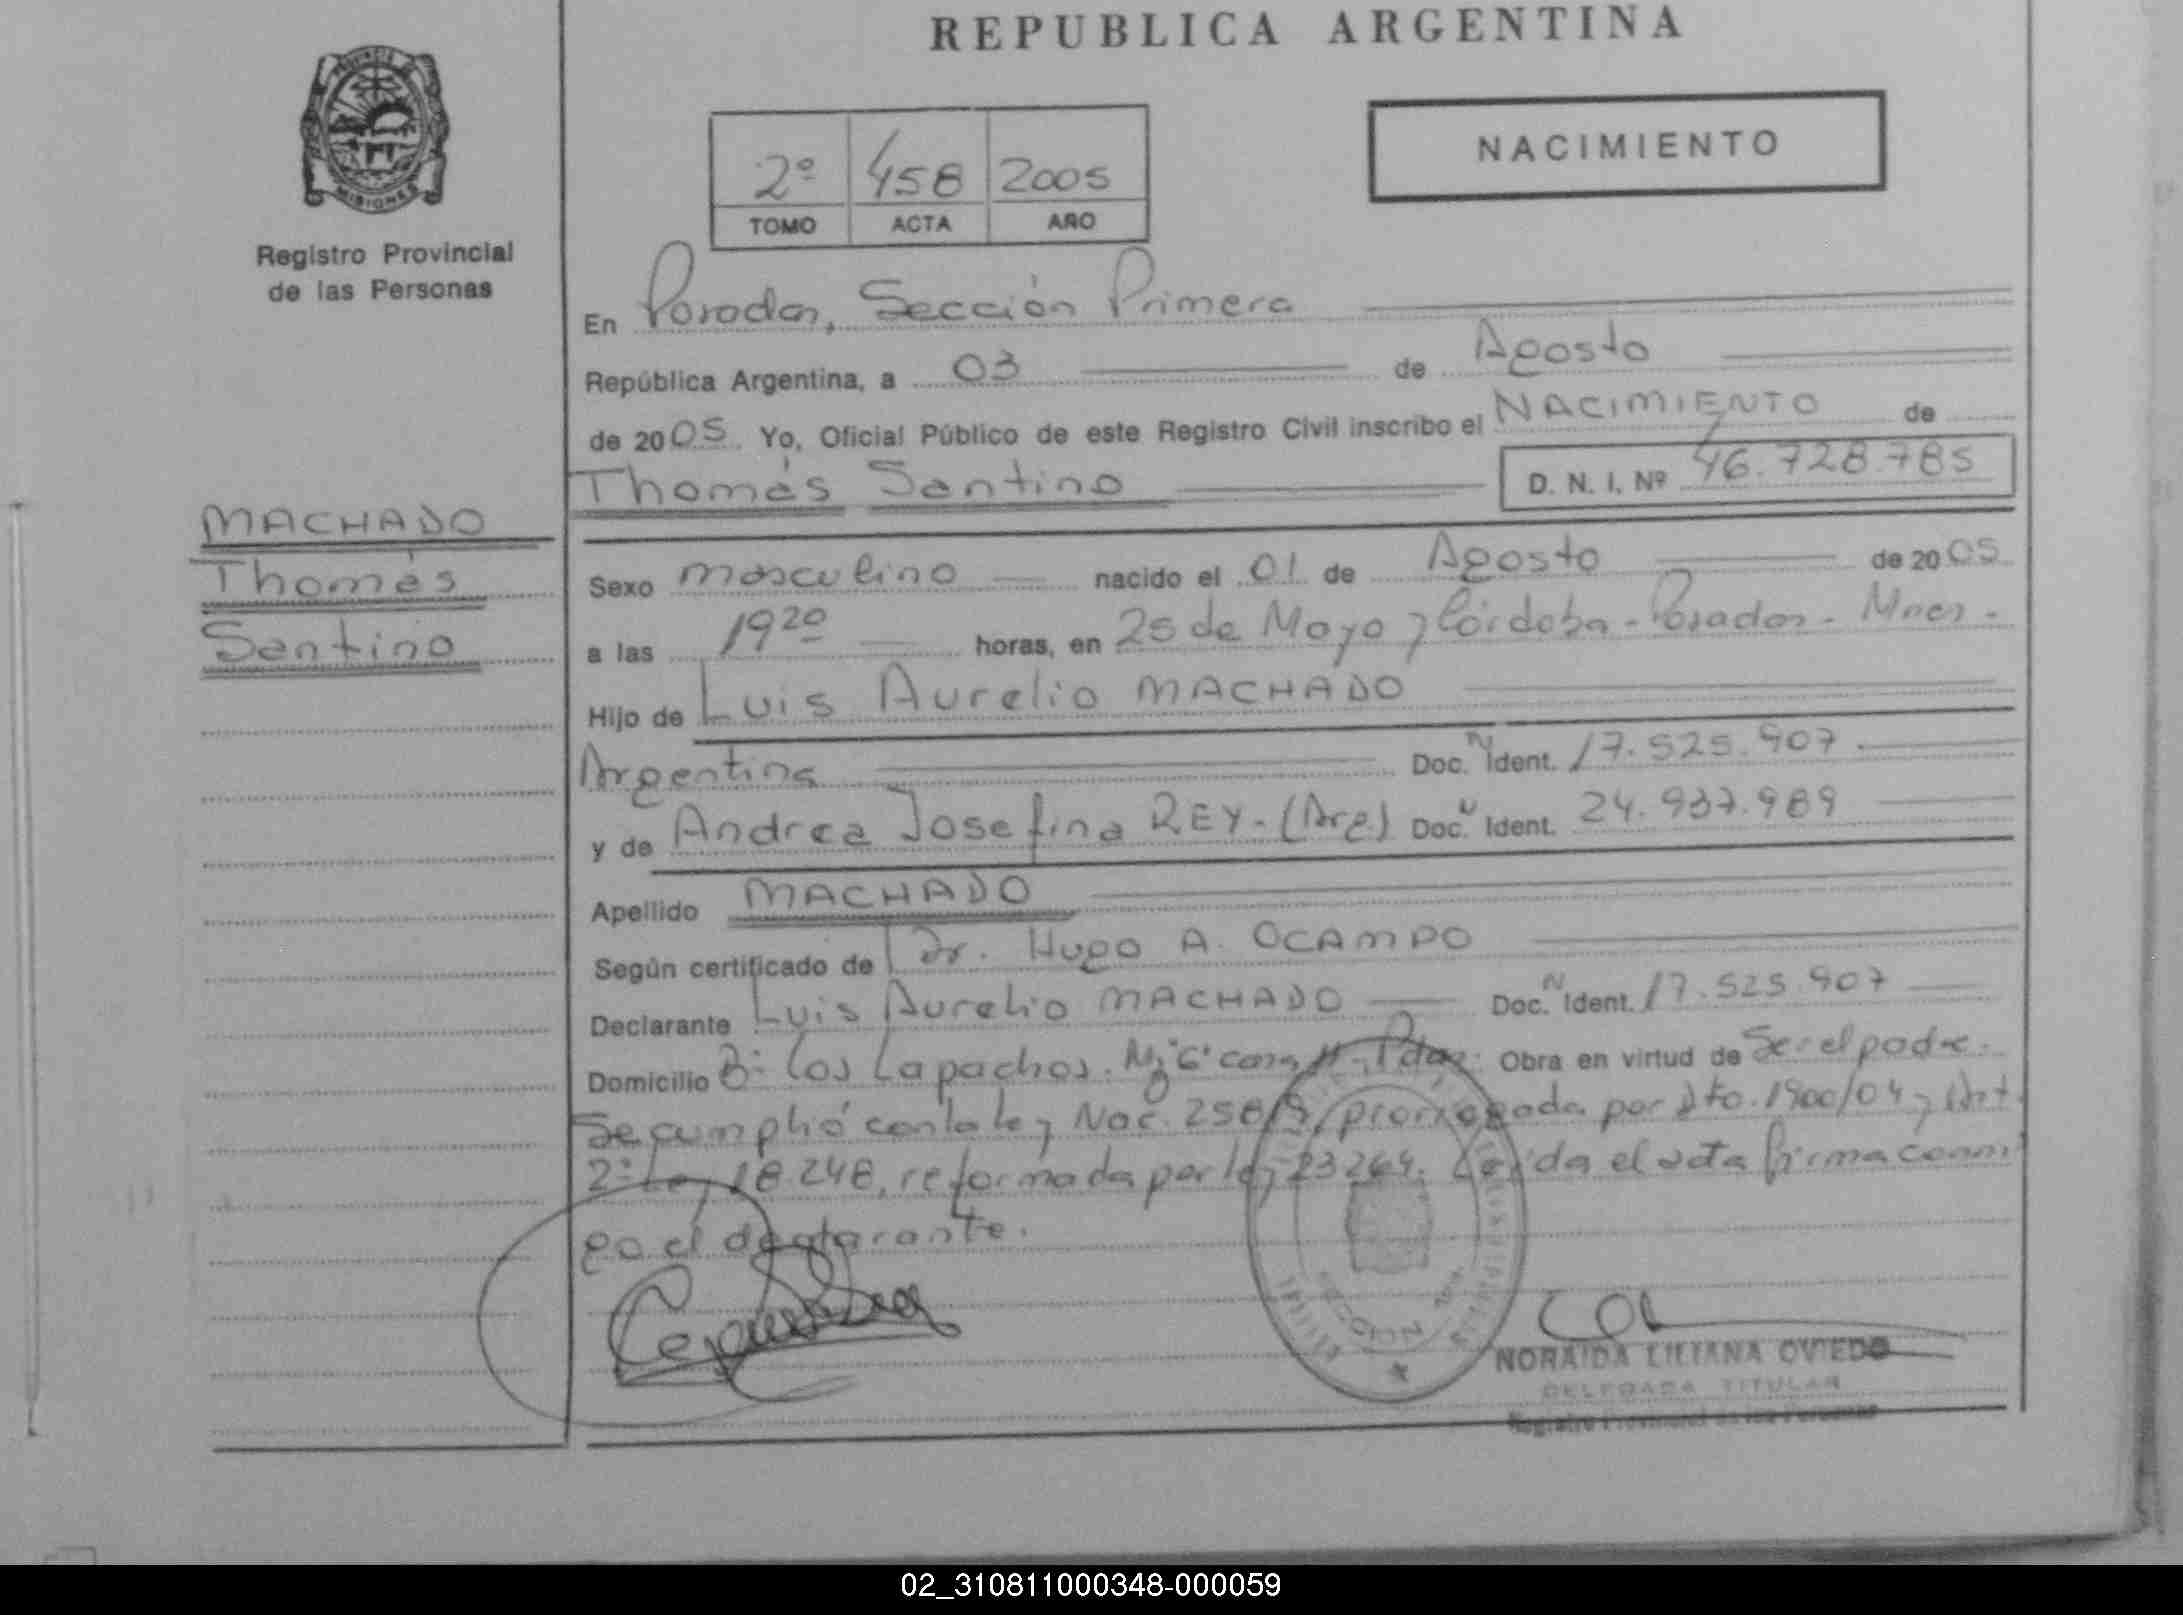 REPUBLICA ARGENTINA
PROVINCIA DE
MISIONES
Registro Provincial
de las Personas
NACIMIENTO
2º 458 2005
TOMO ACTA AÑO
En Posadas, Sección Primera
República Argentina, a 03 de Agosto
de 2005 Yo, Oficial Público de este Registro Civil inscribo el NACIMIENTO de
Thomás Santino D. N. I. Nº 46.728.785
MACHADO
Thomás
Santino
Sexo masculino nacido el 01 de Agosto de 2005
a las 19 20 horas, en 25 de Mayo y Córdoba - Posadas - Mnes.
Hijo de Luis Aurelio MACHADO
Argentina Doc. N Ident. 17.525.907
y de Andrea Josefina REY - (Arg.) Doc. N Ident. 24.937.989
Apellido MACHADO
Según certificado de Dr. Hugo A. OCAMPO
Declarante Luis Aurelio MACHADO Doc. N Ident. 17.525.907
Domicilio Bº Los Lapachos. Mz "G" casa Pdas. Obra en virtud de Ser el padre.
Se cumplió con la ley Nac. 25819, prorrogada por Dto. 1900/04 y Art.
2º Ley 18.248, reformada por ley 23264. Leída el acta firma conmi
go el declarante.
SECCION 1ra.
NORAIDA LILIANA OVIEDO
DELEGADA TITULAR
Registro Provincial de las Personas
02_310811000348-000059